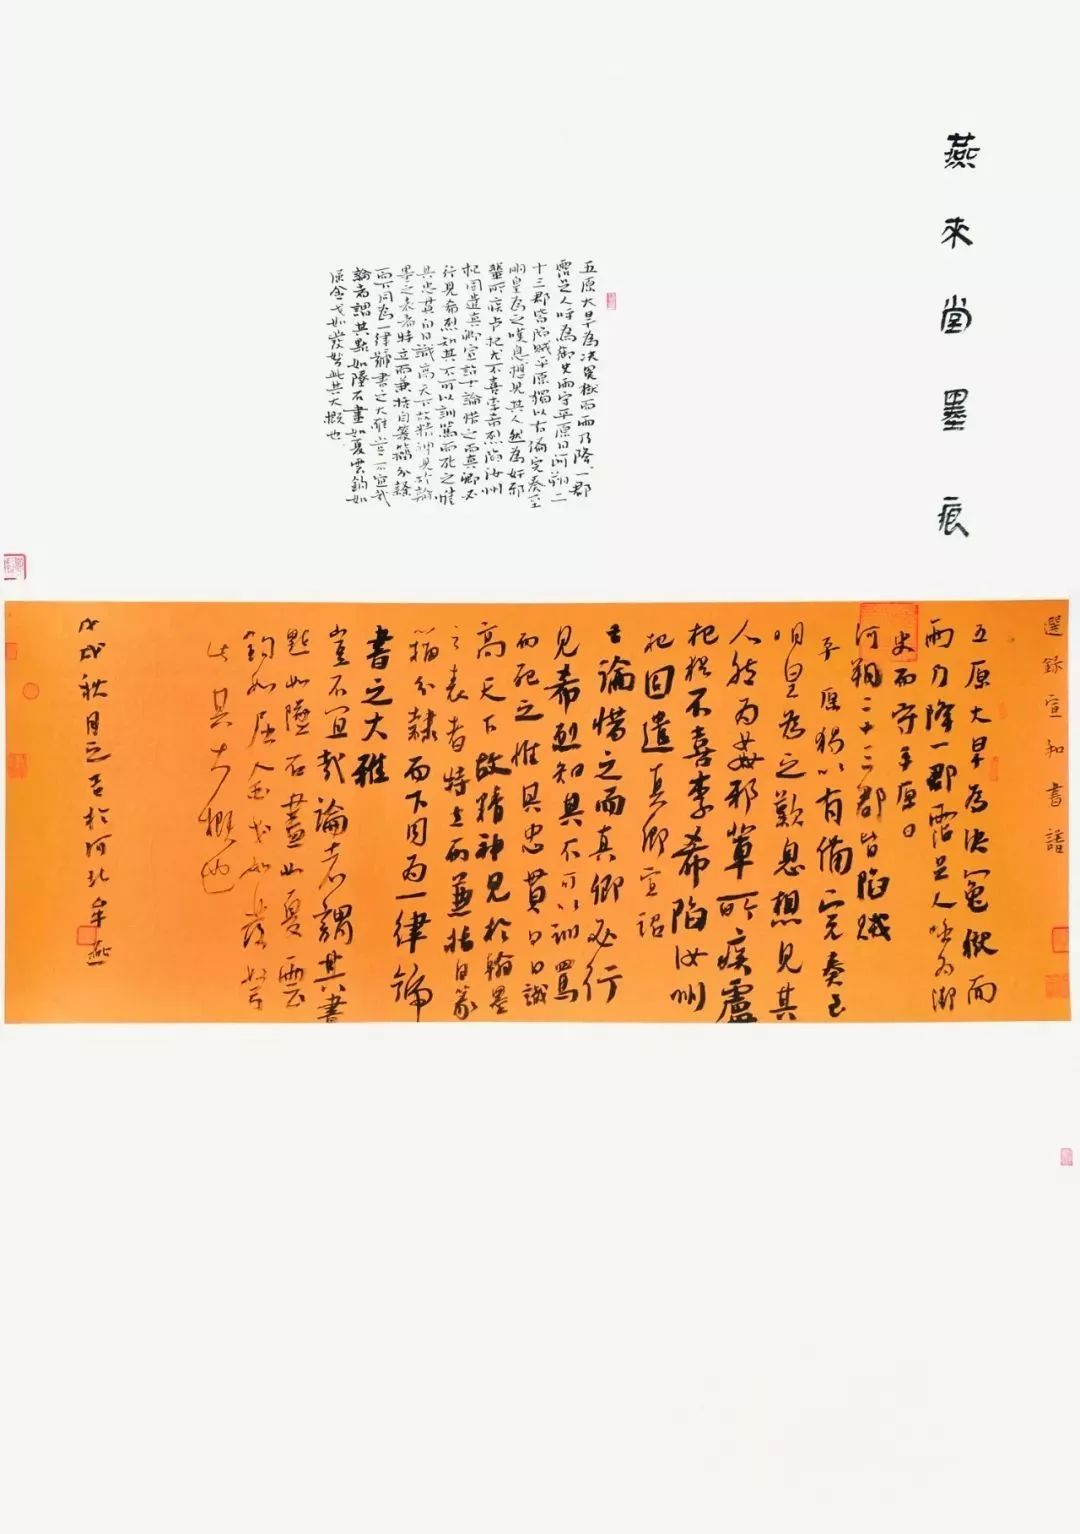 燕來堂墨痕
五原大旱為決冤獄而雨乃降一郡
霑足人呼為御史雨守平原日河朔二
十三郡皆陷賊平原獨以有備完奏至
明皇為之嘆息想見其人然為奸邪
輩所疾卢杞尤不喜李希烈陷汝州
杞因遣真卿宣詔士論惜之而真卿必
行見希烈知其不可以訓罵而死之惟
其忠貫白日識高天下故精神見於翰
墨之表者特立而兼括自篆籀分隸
而下同為一律號書之大雅豈不宜哉
論者謂其點如墜石畫如夏雲鈎如
屈金戈如發弩此其大概也
選錄宣和書譜
五原大旱為決冤獄而
雨乃降一郡霑足人呼為御
史雨守平原日
河朔二十三郡皆陷賊
平原獨以有備完奏至
明皇為之歎息想見其
人然為姦邪輩所疾盧
杞 不喜李希 陷汝州
杞因遣真卿宣詔
士論惜之而真卿必行
見希烈知其不可以訓罵
而死之惟其忠貫白日識
高天下故精神見於翰墨
之表者特立而兼括自篆
籀分隸而下同為一律號
書之大雅
豈不宜哉論者謂其書
點如墜石畫如夏雲
鈎如屈金戈如發弩
此其大概也
戊戌秋月 吉於河北牟燕